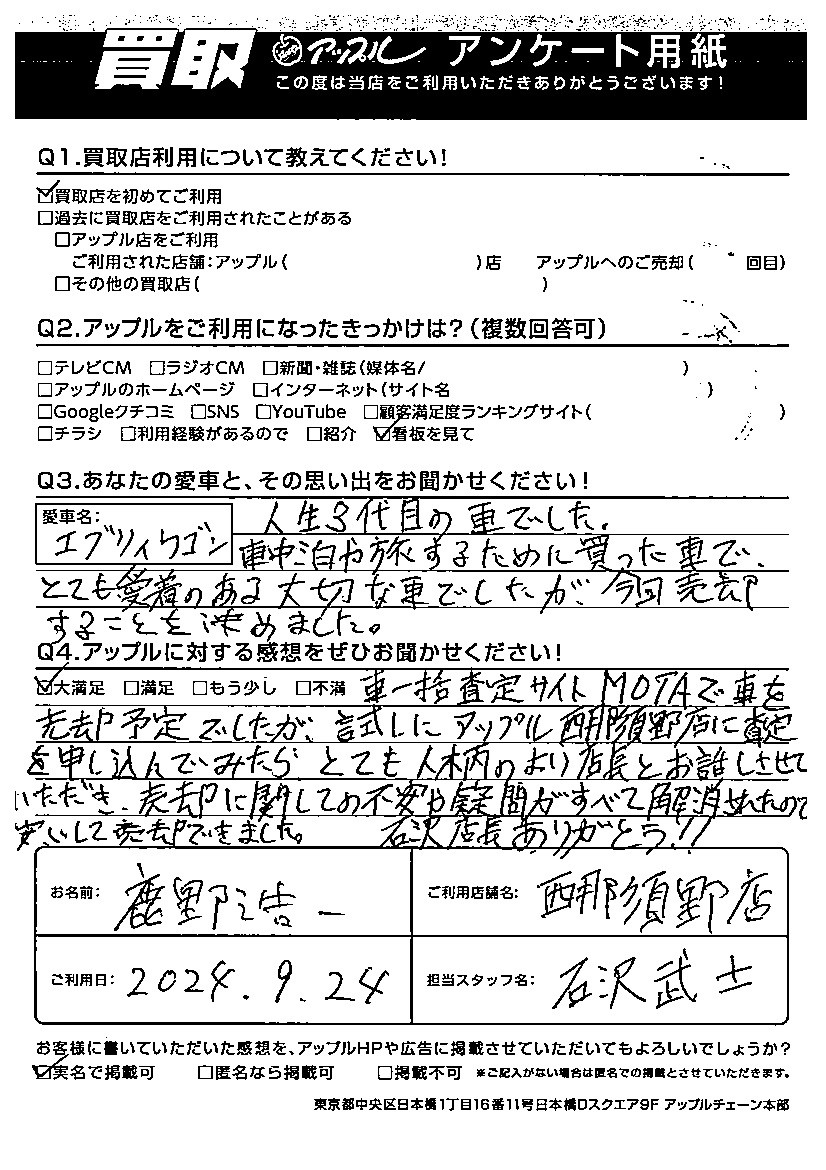 買取 アップル アンケート用紙
この度は当店をご利用いただきありがとうございます!
Q1.買取店利用について教えてください!
☑買取店を初めてご利用
□過去に買取店をご利用されたことがある
□アップル店をご利用
ご利用された店舗:アップル( )店 アップルへのご売却( 回目)
□その他の買取店( )
Q2.アップルをご利用になったきっかけは?(複数回答可)
□テレビCM □ラジオCM □新聞・雑誌(媒体名/ )
□アップルのホームページ □インターネット(サイト名 )
□Googleクチコミ □SNS □YouTube □顧客満足度ランキングサイト( )
□チラシ □利用経験があるので □紹介 ☑看板を見て
Q3.あなたの愛車と、その思い出をお聞かせください!
愛車名: 人生3代目の車でした。
エブリィワゴン 車中泊や旅するために買った車で、
とても愛着のある大切な車でしたが、今回売却
することを決めました。
Q4.アップルに対する感想をぜひお聞かせください!
☑大満足 □満足 □もう少し □不満 車一括査定サイトMOTAで車を
売却予定でしたが、試しにアップル西那須野店に査定
を申し込んでみたら とても人柄のよい店長とお話しさせて
いただき、売却に関しての不安や疑問がすべて解消されたので
安心して売却できました。 石沢店長ありがとう!!
お名前: 鹿野浩一 ご利用店舗名: 西那須野店
ご利用日: 2024.9.24 担当スタッフ名: 石沢武士
お客様に書いていただいた感想を、アップルHPや広告に掲載させていただいてもよろしいでしょうか?
☑実名で掲載可 □匿名なら掲載可 □掲載不可 ※ご記入がない場合は匿名での掲載とさせていただきます。
東京都中央区日本橋1丁目16番11号日本橋Dスクエア9F アップルチェーン本部